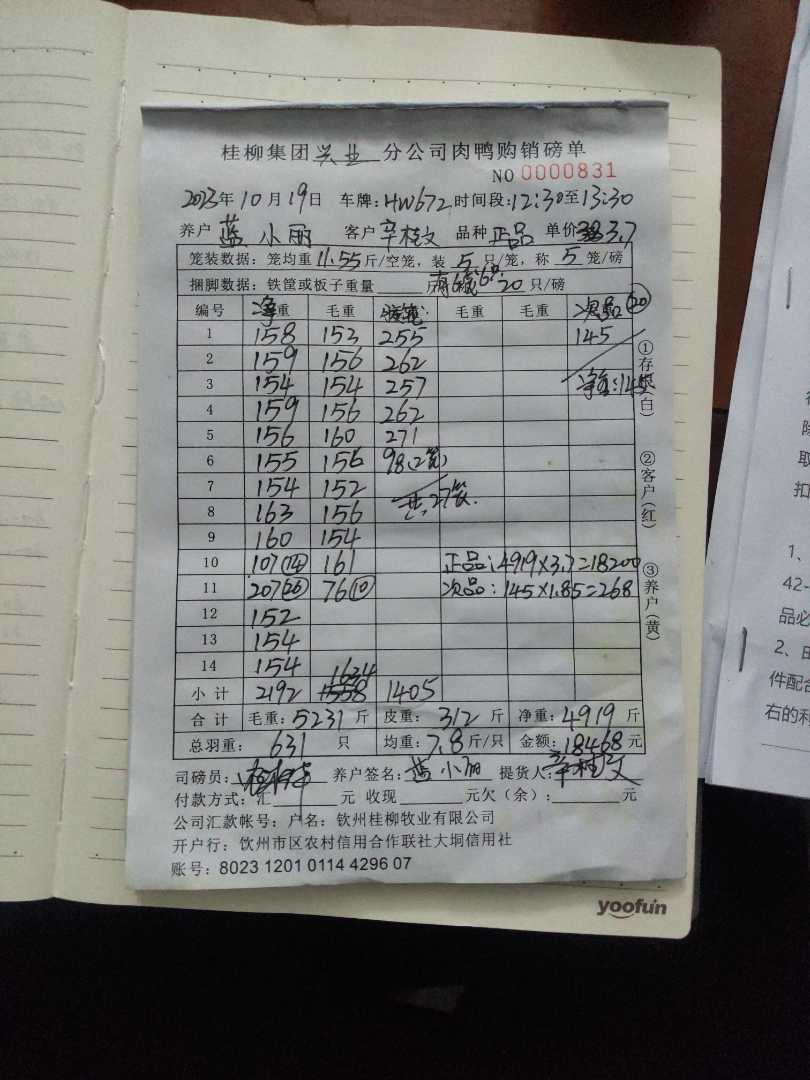 桂柳集团兴业分公司肉鸭购销磅单
NO 0000831
2023年10月19日 车牌:HW672时间段:12:30至13:30
养户 蓝小丽 客户 辛桂文 品种 正品 单价 3.7
笼装数据:笼均重11.55斤/空笼,装5只/笼,称5笼/磅
捆脚数据:铁筐或板子重量 20只/磅
编号 净重 毛重 毛重 毛重 次品(20)
1 158 153 255 145
2 159 156 262
3 154 154 257 净重:145
4 159 156 262
5 156 160 271
6 155 156 98(2笼)
7 154 152 共:27笼.
8 163 156
9 160 154
10 107(14) 161 正品:4919×3.7=18200
11 207(26) 76(10) 次品:145×1.85=268
12 152
13 154
14 154 1634
小计 2192 1405
合计 毛重:5231斤 皮重:312斤 净重:4919斤
总羽重:631只 均重:7.8斤/只 金额:18468元
司磅员: 养户签名:蓝小丽 提货人:辛桂文
付款方式:汇 元 收现 元欠(余): 元
公司汇款帐号:户名:钦州桂柳牧业有限公司
开户行:饮州市区农村信用合作联社大垌信用社
账号:8023 1201 0114 4296 07
①存根(白)
②客户(红)
③养户(黄)
yoofun
除
取
扣
1、
42-
品必
2、
件配合
右的利